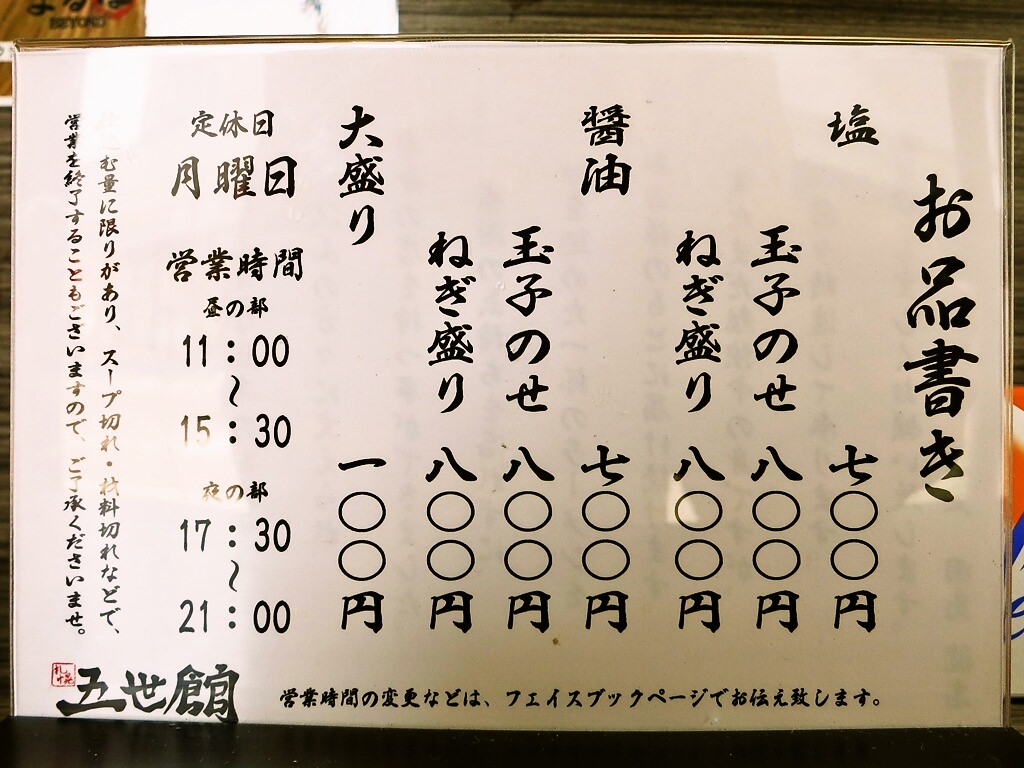 お品書き
塩 七〇〇円
玉子のせ 八〇〇円
ねぎ盛り 八〇〇円
醤油 七〇〇円
玉子のせ 八〇〇円
ねぎ盛り 八〇〇円
大盛り 一〇〇円
定休日
月曜日
営業時間
昼の部
11:00
〜
15:30
夜の部
17:30
〜
21:00
む量に限りがあり、スープ切れ・材料切れなどで、
営業を終了することもございますので、ご了承くださいませ。
五世館
営業時間の変更などは、フェイスブックページでお伝え致します。
BEYOND